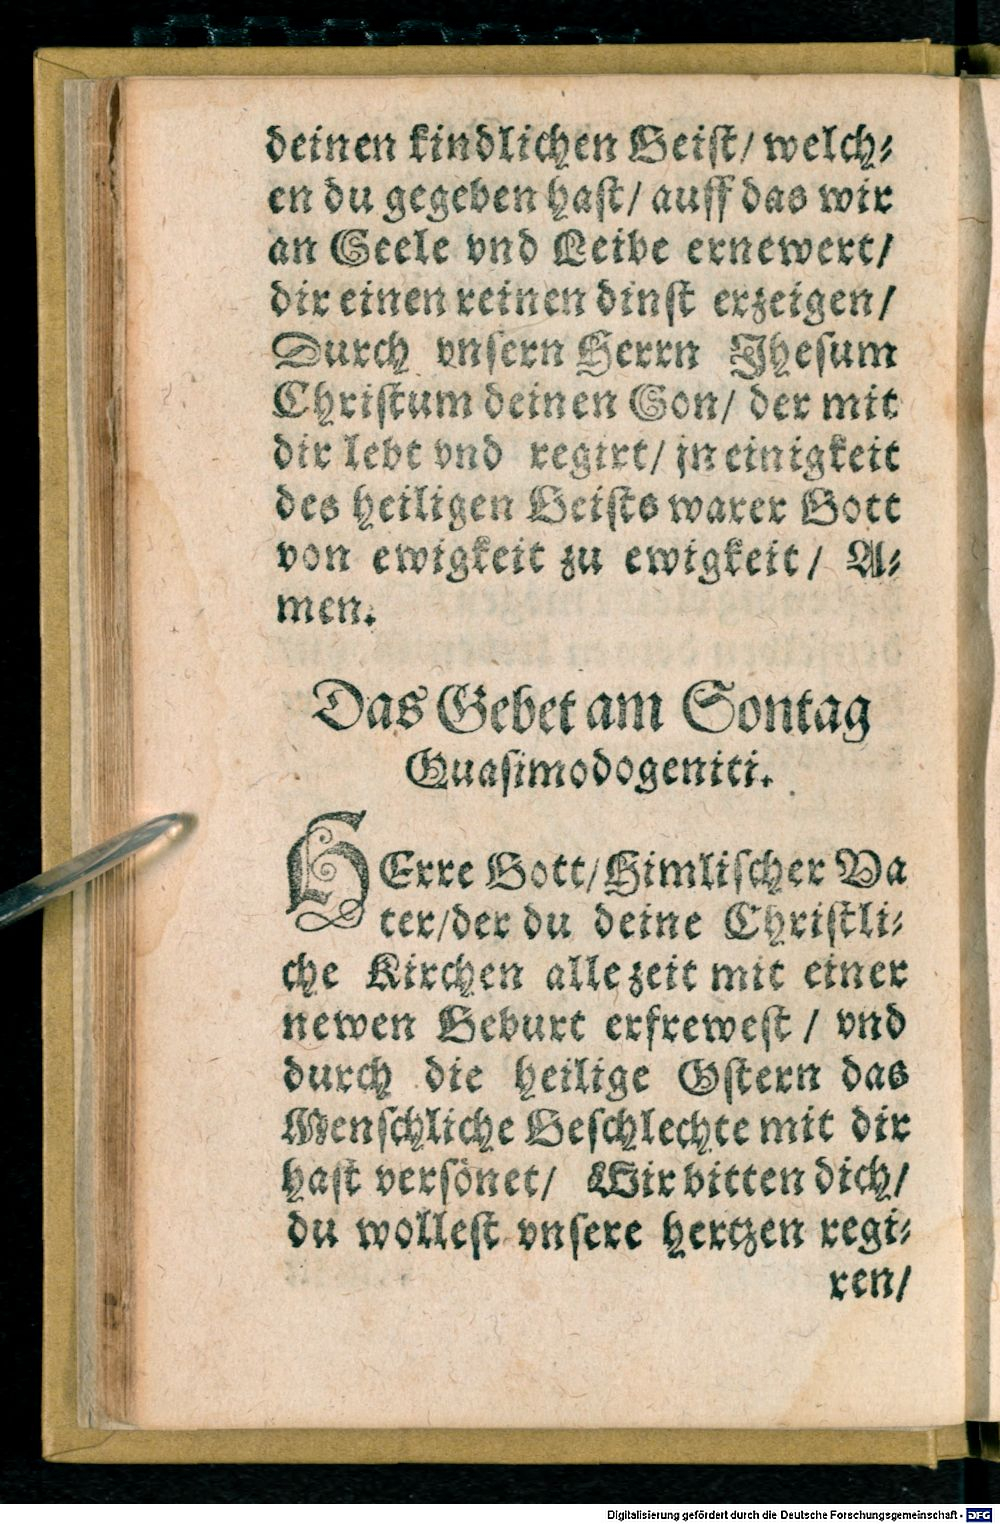 deinen kindlichen Geist/ welch⸗
en du gegeben hast/ auff das wir
an Seele vnd Leibe ernewert/
dir einen reinen dinst erzeigen/
Durch vnsern Herrn Jhesum
Christum deinen Son/ der mit
dir lebt vnd regirt/ jn einigkeit
des heiligen Geists warer Gott
von ewigkeit zu ewigkeit/ A⸗
men.
Das Gebet am Sontag
Quasimodogeniti.
HErre Gott/ Himlischer Va
ter/ der du deine Christli⸗
che Kirchen alle zeit mit einer
newen Geburt erfrewest / vnd
durch die heilige Ostern das
Menschliche Geschlechte mit dir
hast versönet/ Wir bitten dich/
du wollest vnsere hertzen regi⸗
ren/
Digitalisierung gefördert durch die Deutsche Forschungsgemeinschaft - DFG